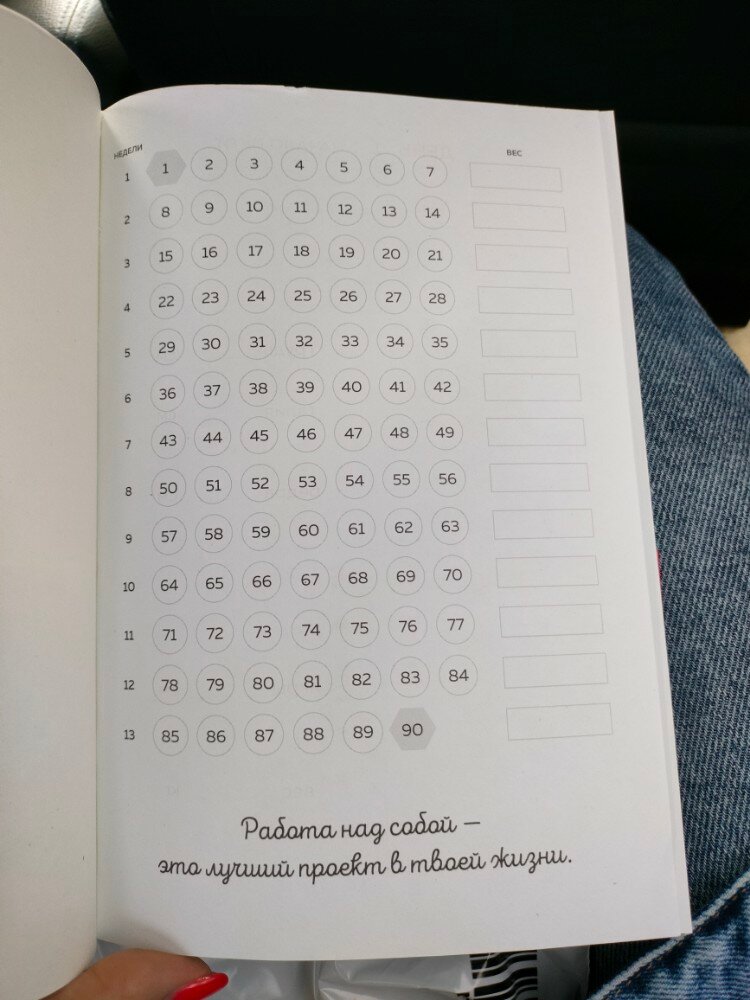 НЕДЕЛИ ВЕС
1 1 2 3 4 5 6 7
2 8 9 10 11 12 13 14
3 15 16 17 18 19 20 21
4 22 23 24 25 26 27 28
5 29 30 31 32 33 34 35
6 36 37 38 39 40 41 42
7 43 44 45 46 47 48 49
8 50 51 52 53 54 55 56
9 57 58 59 60 61 62 63
10 64 65 66 67 68 69 70
11 71 72 73 74 75 76 77
12 78 79 80 81 82 83 84
13 85 86 87 88 89 90
Работа над собой —
это лучший проект в твоей жизни.